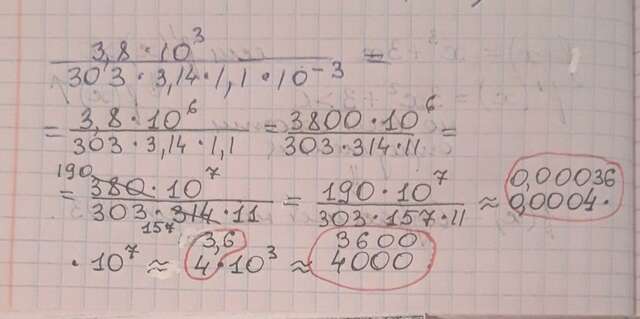 3,8 · 10³ / 303 · 3,14 · 1,1 · 10⁻³ =
= 3,8 · 10⁶ / 303 · 3,14 · 1,1 = 3800 · 10⁶ / 303 · 314 · 11 =
190
= 380 · 10⁷ / 303 · 314 · 11 = 190 · 10⁷ / 303 · 157 · 11 ≈ 0,00036
0,0004 ·
157
3,6
3600
· 10⁷ ≈ 4 · 10³ ≈ 4000